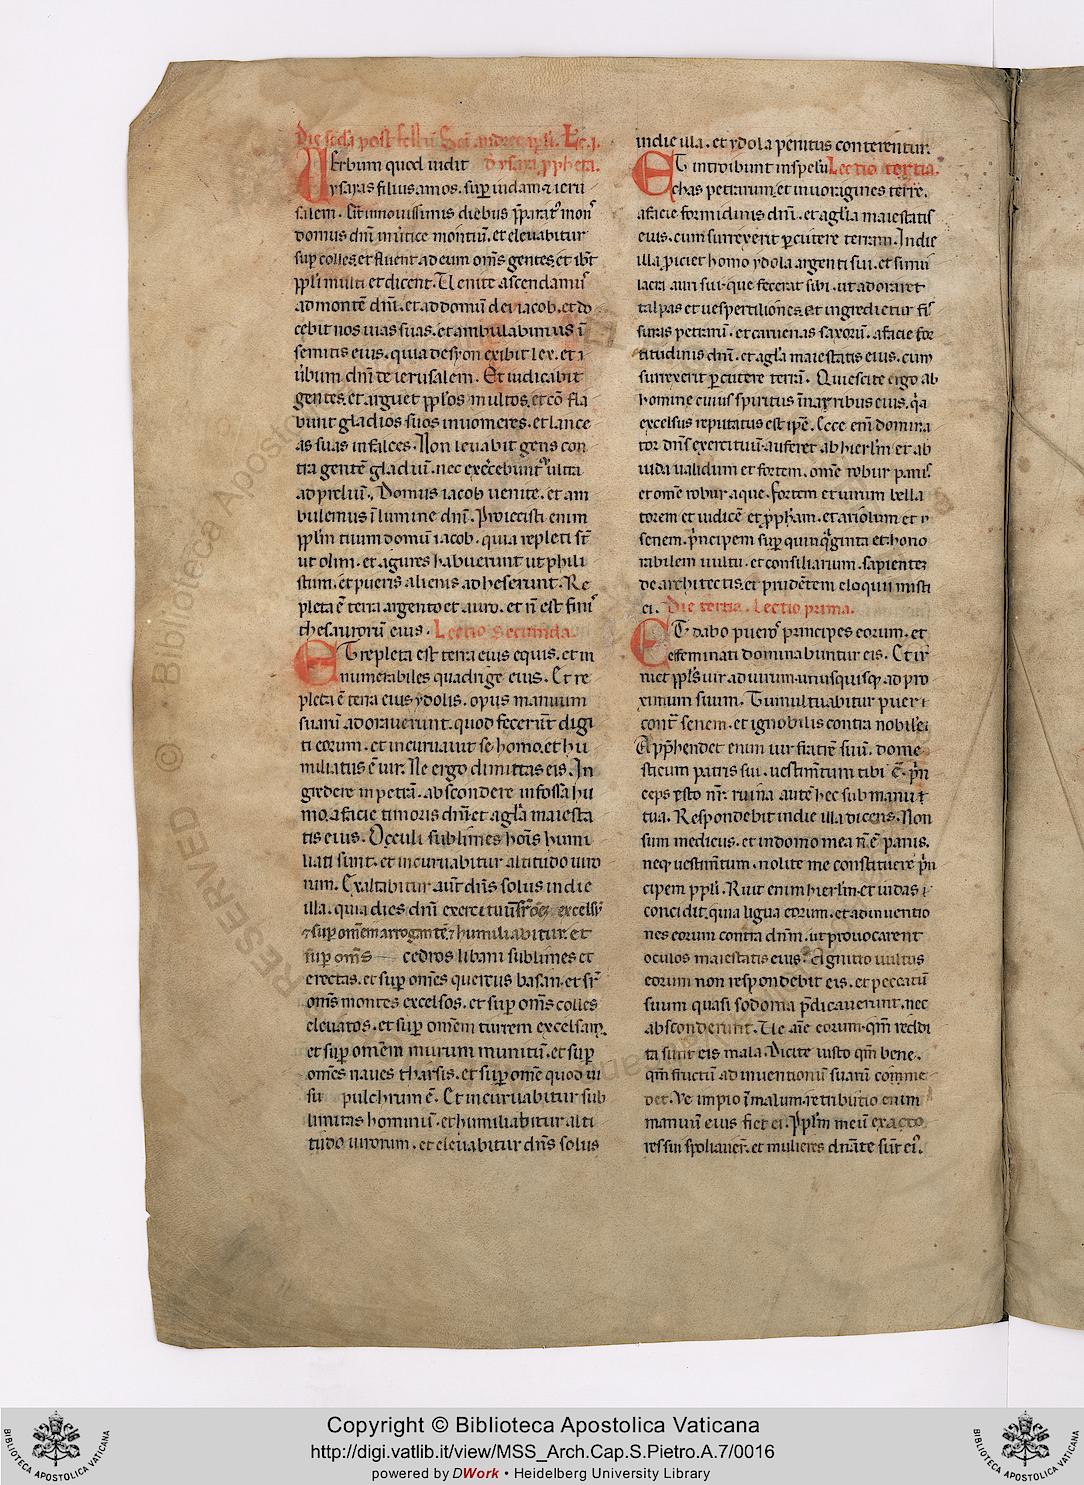 Die scđa post festũ Sc̃i Andree apl̃i. Lc̃. i.
Verbum quod uidit Dysaia ꝓpheta.
ysayas filius amos. suꝑ iudam ⁊ ieru
salem. Et̃ in nouissimis diebus p̃parat᷒ mons᷒
domus dñi in ũtice montiũ. et eleuabitur
suꝑ colles. et fluent ad eum om̃s gentes. et ib̃t
ppl̃i multi et dicent. Uenite ascendamus᷒
ad montẽ dñi. et ad domũ dei iacob. et do
cebit nos uias suas. et ambulabimus ĩ
semitis eius. quia de syon exibit lex. et
ũbum dñi de ierusalem. Et iudicabit
gentes. et arguet ppl̃os multos. et cõfla
bunt gladios suos in uomeres. et lance
as suas in falces. Non leuabit gens con
tra gentẽ gladiũ. nec exẽcebunt᷒ ultra
ad preliũ. Domus iacob uenite. et am
bulemus ĩ lumine dñi. Proiecisti enim
ppl̃m tuum domũ iacob. quia repleti st̃
ut olim. et agures habuerunt ut phili
stiim. et pueris alienis adheserunt. Re
pleta ẽ terra argento et auro. et ñ est finis᷒
thesaurorũ eius. Lectio Secunda.
ET repleta est terra eius equis. et in
numerabiles quadrige eius. Et re
pleta ẽ terra eius ydolis. opus manuum
suarũ adorauerunt. quod fecerũt digi
ti eorum. et incuruauit se homo. et hu
miliatus ẽ uir. Ne ergo dimittas eis. In
gredere in petrã. abscondere in fossa hu
mo. a facie timoris dñi et a gl̃a maiesta
tis eius. Occuli sublimes hoĩs humi
liati sunt. et incuruabitur altitudo uiro
rum. Exaltabitur aut̃ dñs solus in die
illa. quia dies dñi exercituũ sr̃ õem excelsũ
⁊ suꝑ om̃em arrogantẽ. ⁊ humiliabitur. et
suꝑ om̃s cedros libani sublimes et
erectas. et suꝑ om̃es quercus basan. et sr̃
om̃s montes excelsos. et suꝑ om̃s colles
eleuatos. et suꝑ om̃em turrem excelsam.
et suꝑ om̃em murum munitũ. et suꝑ
om̃es naues tharsis. et suꝑ om̃e quod ui
su pulchrum ẽ. Et incuruabitur sub
limitas hominũ. et humiliabitur alti
tudo uirorum. et eleuabitur dñs solus
in die illa. et ydola penitus conterentur.
ET introibunt in spelũ Lectio tertia.
chas petrarum. et in uoragines terre.
a facie formidinis dñi. et a gl̃ia maiestatis
eius. cum surrexerit ꝑcutere terram. In die
illa ꝓiciet homo ydola argenti sui. et simu
lacra auri sui. que fecerat sibi. ut adoraret
talpas et uespertiliones. Et ingredietur fis
suras petrarũ. et cauernas saxorũ. a facie for
titudinis dñi. et a gl̃a maiestatis eius. cum
surrexerit ꝑcutere terrã. Quiescite ergo ab
homine cuius spiritus ĩ naribus eius. q̃a
excelsus reputatus est ip̃e. Ecce enĩ domina
tor dñs exercituũ. auferet ab hierl̃m et ab
iuda ualidum et fortem. om̃e robur panis᷒.
et om̃e robur aque. fortem et uirum bella
torem et iudicẽ et ꝓph̃am. et ariolum et
senem. p̃ncipem suꝑ quinq̃ginta et hono
rabilem uultu. et consiliarium. sapientem
de architectis. et prudẽtem eloquii misti
ci. Die tertia. Lectio prima.
ET dabo puero᷒ principes eorum. et
effeminati dominabuntur eis. Et ir
ruet ppl̃s uir ad uirum. unusquisq̃ ad pro
ximum suum. Tumultuabitur puer
cont̃ senem. et ignobilis contra nobilẽ.
Apprehendet enim uir fratrẽ suũ. dome
sticum patris sui. uestim̃tum tibi ẽ. p̃n
ceps esto nr̃. ruina autẽ hec sub manu
tua. Respondebit in die illa dicens. Non
sum medicus. et in domo mea ñ ẽ panis.
neq̃ uestim̃tum. nolite me constituere p̃n
cipem ppl̃i. Ruit enim hierl̃m. et iudas
concidit. quia ligua eorum. et adinuentio
nes eorum contra dñm. ut prouocarent
oculos maiestatis eius. Agnitio uultus
eorum non respondebit eis. et peccatũ
suum quasi sodoma p̃dicauerunt. nec
absconderunt. Ue aĩe eorum. qm̃ reddi
ta sunt eis mala. Dicite iusto qm̃ bene.
qm̃ fructũ adinuentionũ suarũ comme
det. Ve impio ĩ malum. retributio enim
manuũ eius fiet ei. Ppl̃m meũ exacto
res sui spoliauer̃. et mulieres dñate sũt ei᷒.
Copyright © Biblioteca Apostolica Vaticana
http://digi.vatlib.it/view/MSS_Arch.Cap.S.Pietro.A.7/0016
powered by DWork • Heidelberg University Library